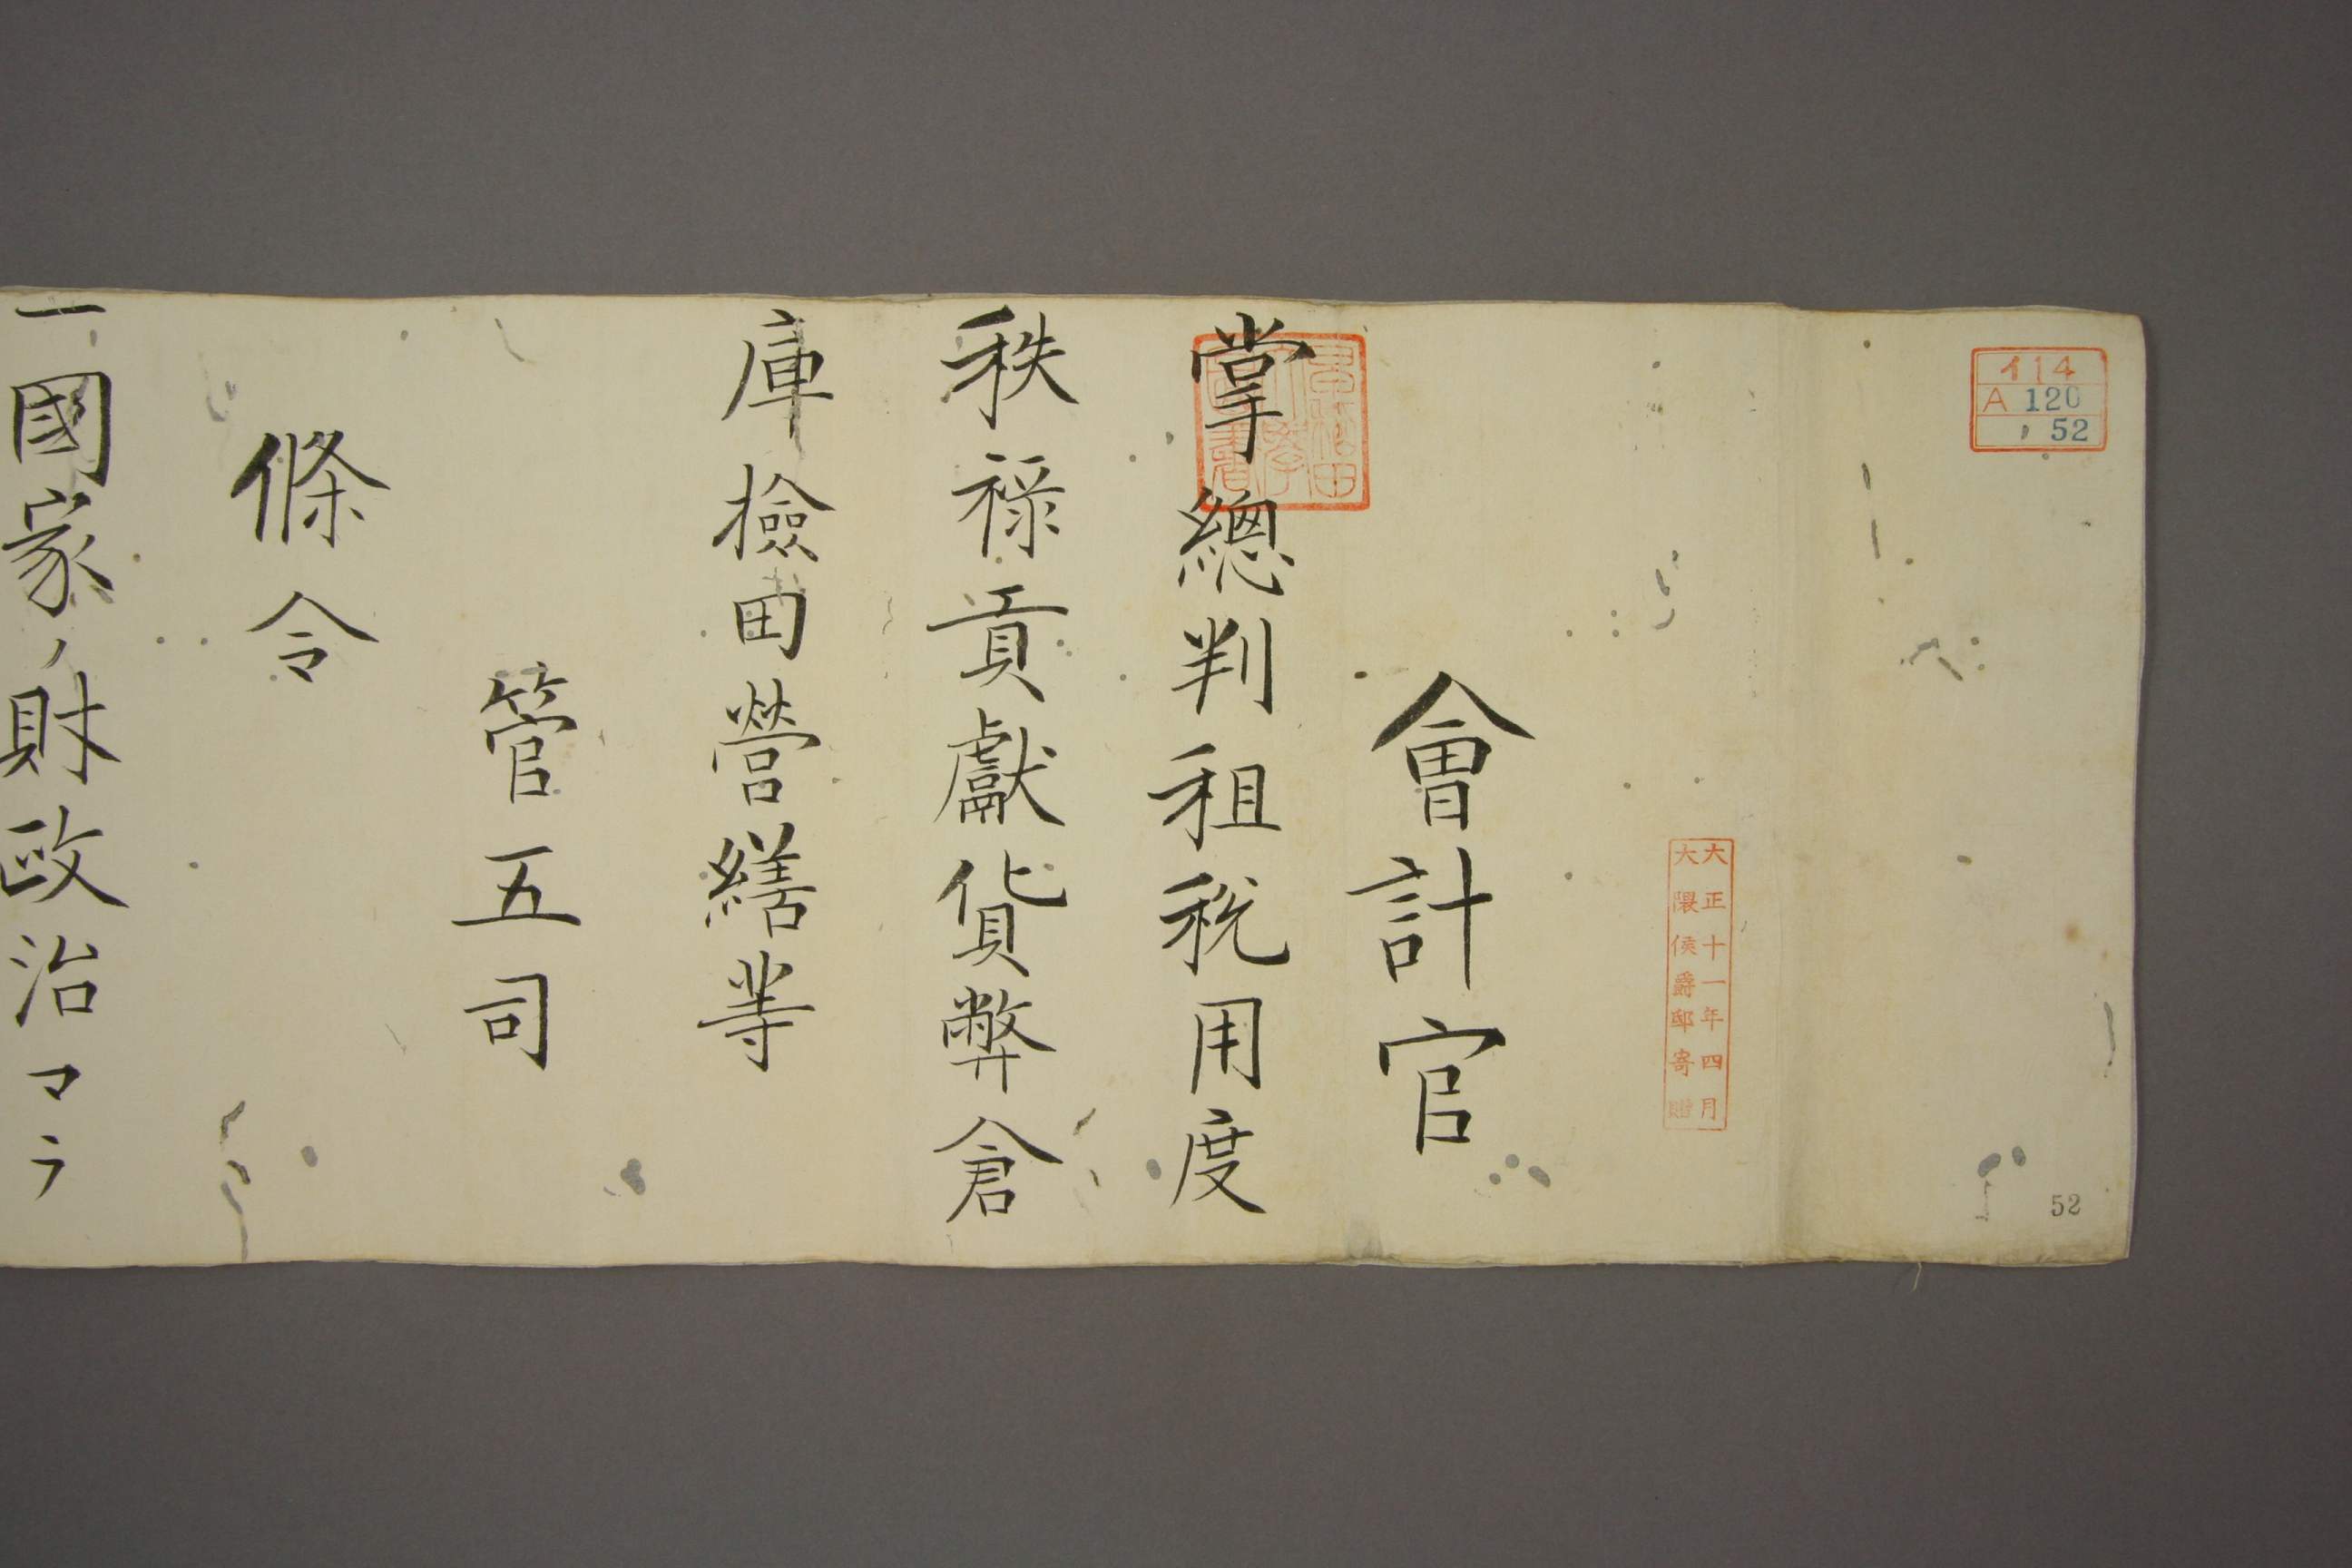 イ14
A 120
52
大正十一年四月
大隈侯爵邸寄贈
會計官
掌總判租税用度
秩禄貢獻貨弊倉
庫撿田營繕等
管五司
條令
一國家ノ財政治マラ
早稲田大學圖書
52